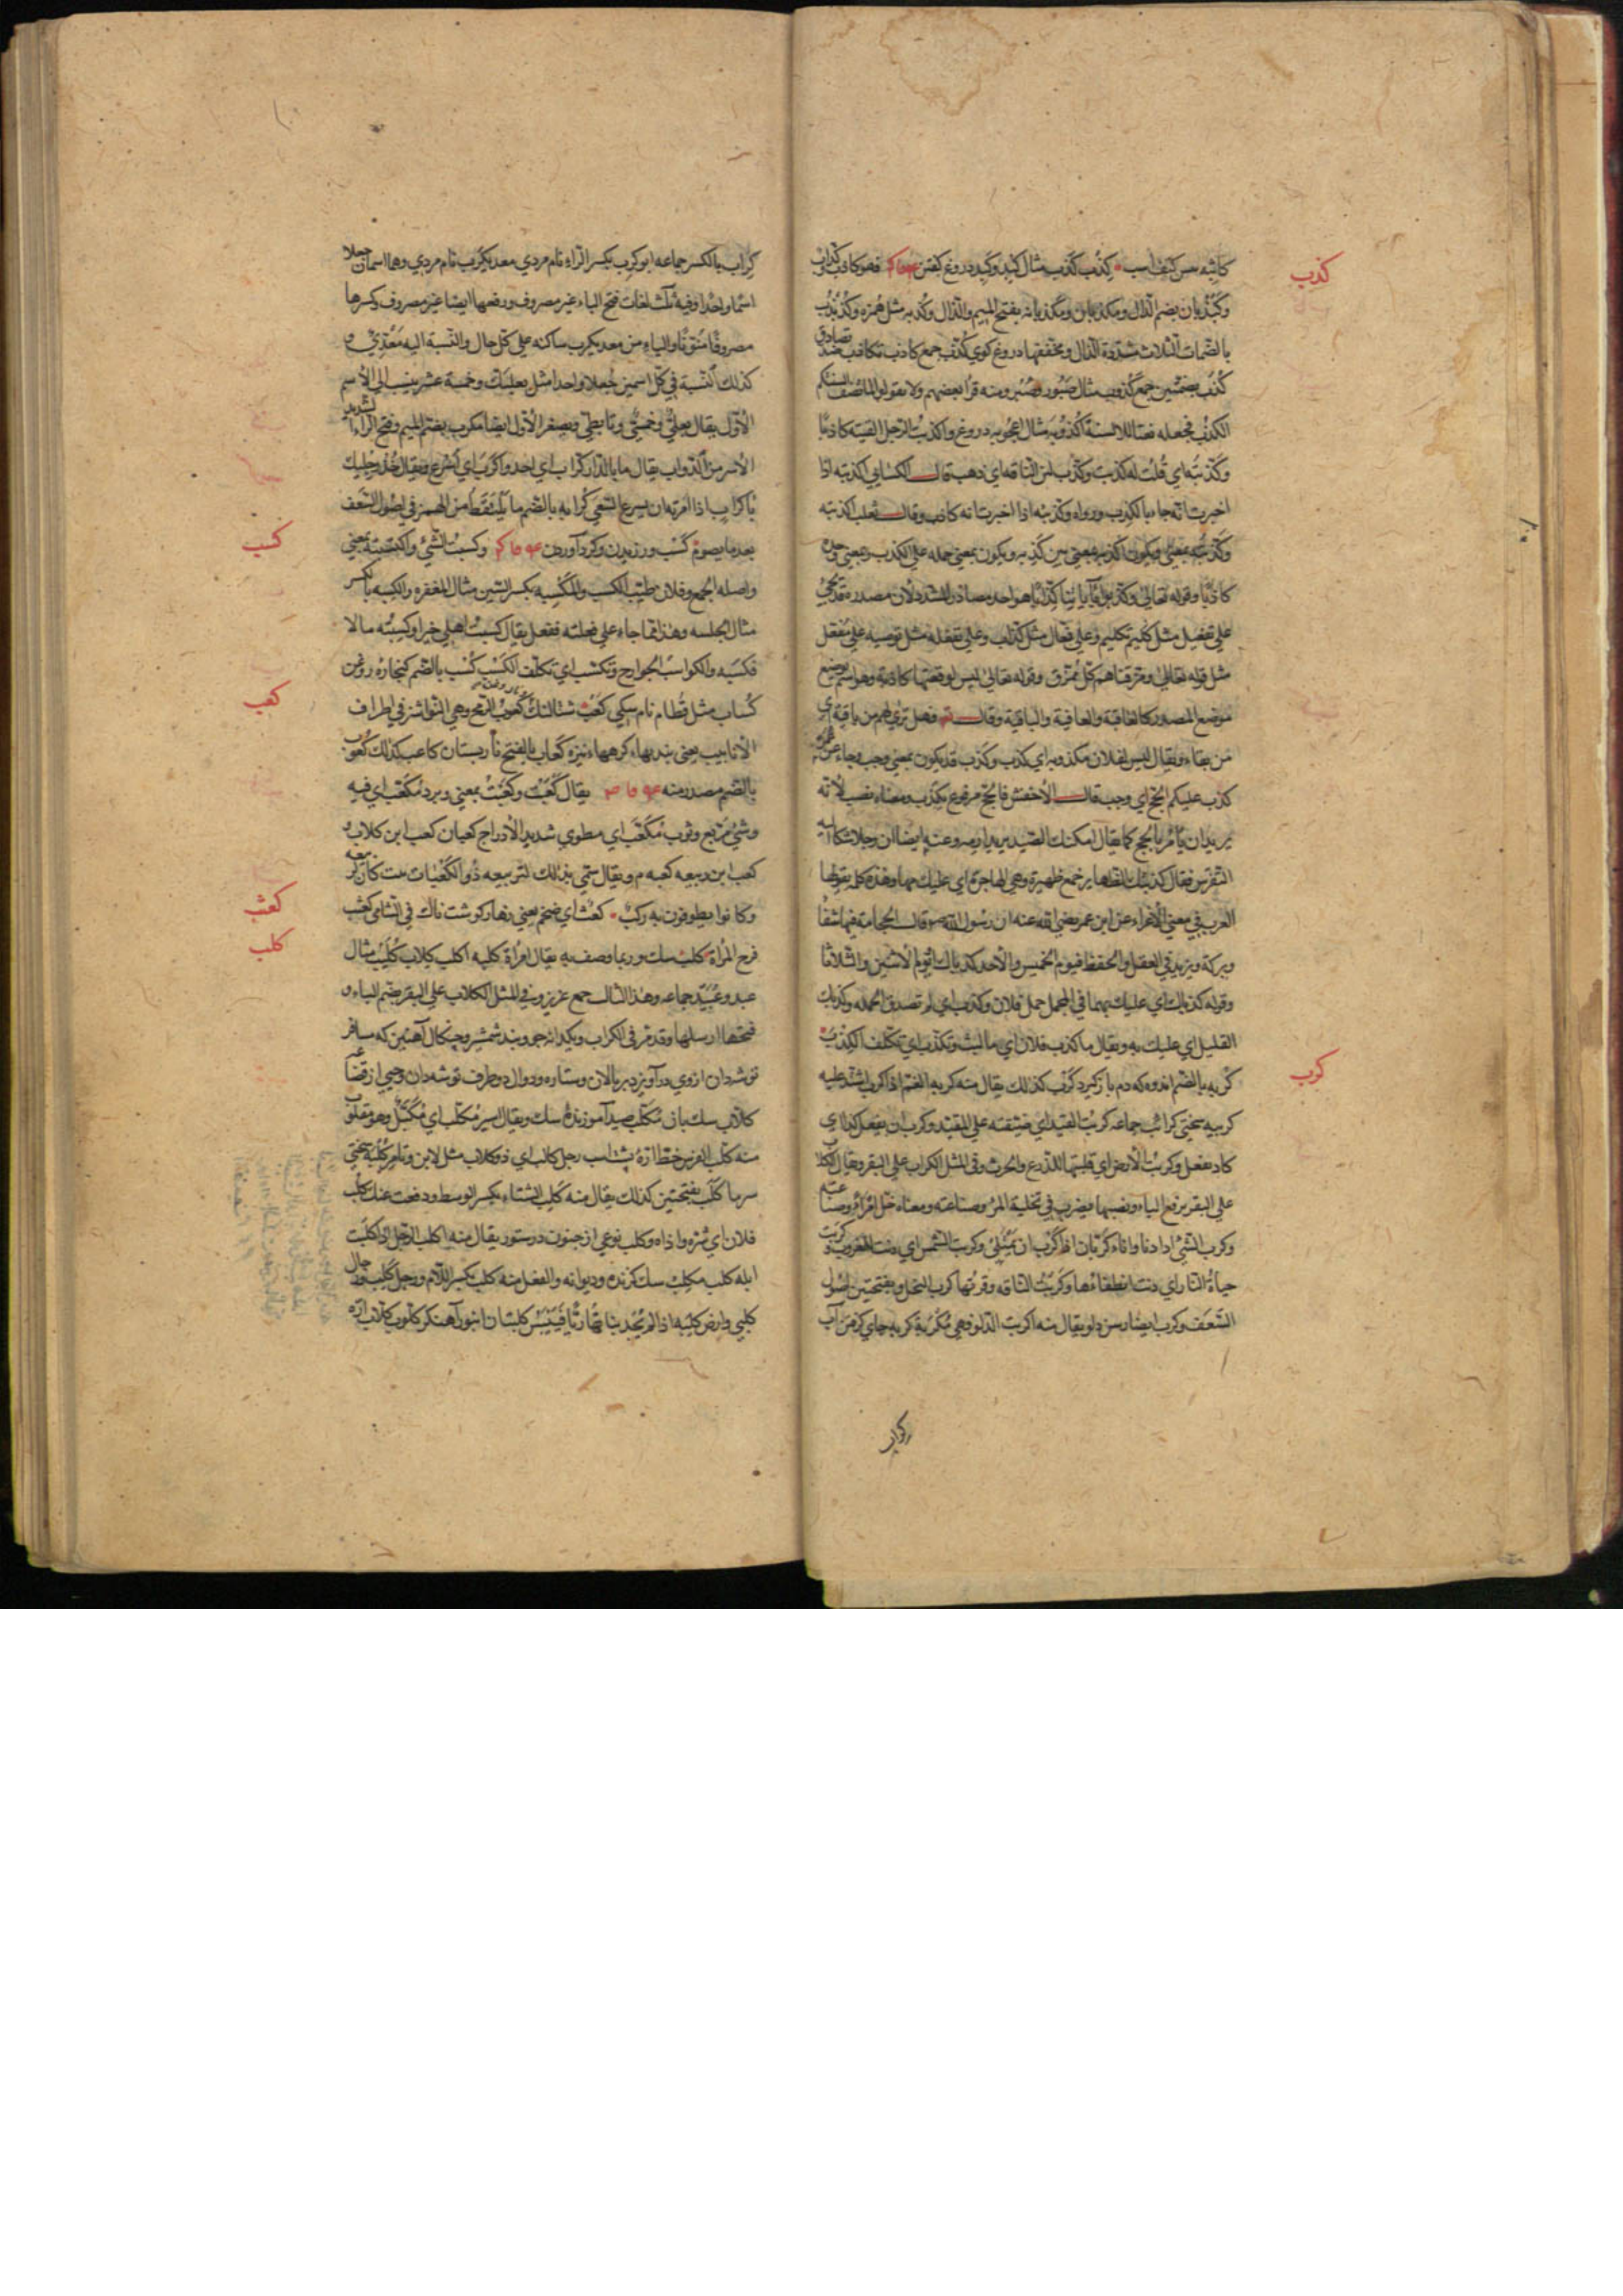 كذب
كِذْب كَذِب مثال كِبْد وكَبِد دروغ كفتن فهو كاذب وكذّاب
وكَيْذُبان بضم الذال ومكذبان ومكذبانه بفتح الميم والذال وكُذَبه مثل هُمَزه وكُذُبْذُب
بالضمات الثلاث مشددة الذال ومخففتها دروغ كوي كُذَّب جمع كاذب تكاذب ضد تصادق
كُذُب بضمتين جمع كذوب مثال صَبُور وصُبُر ومنه قرأ بعضهم ولا تقولوا لما تصف السنتكم
الكذب فجعله نعتا للالسنة أكذوبه مثال اعجوبه دروغ واكذبتُ الرجل الفيته كاذبًا
وكذّبته اي قلت له كذبت وكذب لبن الناقه اي ذهب قال الكسائي اكذبته اذا
اخبرت انه جاء بالكذب ورواه وكذبته اذا اخبرت انه كاذب وقال ثعلب اكذبه
وكذّبه بمعني ويكون اكذبه بمعني بين كذبه ويكون بمعني حمله علي الكذب وبمعني وجده
كاذبًا وقوله تعالي وكذبوا بآياتنا كِذّابًا هو احد مصادر المشدد لان مصدره قد يجيء
علي تفعيل مثل كليم تكليم وعلي فعّال مثل كذّاب وعلي تفعله مثل توصيه وعلي مُفعّل
مثل قوله تعالي ومزقناهم كل ممزق وقوله تعالي ليس لوقعتها كاذبة وهو اسم يوضع
موضع المصدر كالعاقبة والعافية والباقية وقال تعـ فهل تري لهم من باقية اي
من بقاء ويقال ليس لفلان مكذوبه اي كذب وكَذَب قد يكون بمعني وجب وجاء عن عمر
كذب عليكم الحج اي وجب قال الأخفش فالحج مرفوع بكذب ومعناه نصب لأنه
يريد ان يأمر بالحج كما يقال امكنك الصيد يريد ارمه وعنه ايضا ان رجلا شكا اليه
النقرس فقال كذبتك الظهاير جمع ظهيرة وهي الهاجرة اي عليك بها وهذه كلمه يقولها
العرب في معني الأغراء عن ابن عمر رضي الله عنه ان رسول الله صـ قال الحجامة فيها شفآ
وبركة ويزيد في العقل والحفظ فيوم الخميس والأحد كذباك او يوم الأثنين والثلاثا
وقوله كذباك اي عليك بهما في المجمل حمل فلان وكذب اي لم تصدق الحمله وكذبك
القليل اي عليك به ويقال ما كذب فلان اي ما لبث وتكذّب اي تكلف الكذب
كرب
كُربه بالضم اندوه كه دم باز كيرد كَرْب كذلك يقال منه كربه الغم اذا كرب اشتد عليه
كريبه سختي كرائب جماعه كربتُ القيد اي ضيقته علي المقيّد وكرب ان يفعل كذا اي
كاد يفعل وكربتُ الأرض اي قلبتها للزرع والحرث وفي المثل الكراب علي البقر ويقال الكلاب
علي البقر برفع الياء ونصبها فيضرب في تخلية المرء وصناعته ومعناه خل امرأ وصناعته
وكرب الشئ اذا دنا واناء كربان اذا كرب ان يمتلئ وكربت الشمس اي دنت للغروب وكربت
حياة النار اي دنت انطفاءها وكربتُ الناقه وقرتها كرب النخل وبفتحتين اصول
السَعَف وكرب ايضا رسن دلو يقال منه اكربت الدلو فهي مُكرَبة كربه جاي كرفتن آب
كراب
كِراب بالكسر جماعه ابو كرب بكسر الراء نام مردي معديكرب نام مردي وهما اسمان جعلا
اسمًا واحدًا وفيه ثلث لغات فتح الباء غير مصروف ورفعها ايضا غير مصروف وكسرها
مصروفًا مُنونًا والياء من معديكرب ساكنه علي كل حال والنسبة اليه مَعْدِيّ و
كذلك النسبة في كل اسمين جُعلا واحدا مثل بعلبك وخمسة عشر ينسب الي الأسم
الأول يقال بعليّ وخمسيّ وتأبطيّ ويصغر الأول ايضا مكرّب بضم الميم وفتح الراء الشديد
الأسر من الدواب يقال ما بالدار كرّاب اي احد واكرب اي اسرع ويقال خذ رجليك
باكراب اذا امرته ان يسرع السعي كُرابه بالضم ما يلتقط من التمر في اصول السعف
كسب
بعد ما يصرم كَسْب ورزيدن وكرد آوردن وكسبتُ الشئ واكتسبته بمعني
واصله الجمع وفلان طيّب الكسب والمكسبه بكسر السين مثال المغفره والكسبه بالكسر
مثال الجلسه وهذا مما جاء علي فعلته ففعل يقال كسبت اهلي خيرا وكسبته مالا
فكسبه والكواسب الجوارح وتكسّب اي تكلف الكسب كُسب بالضم كنجاره روغن
كعب
كَساب مثل قَطام نام سكي كَعْب شتالنك كعوب الرمح وهي النواشز في اطراف
الأنابيب يعني بندها وكرهها نيزه كَعاب بالفتح نارپستان كاعب كذلك كُعوب
بالضم مصدر منه يقال كَعَبَتْ وكَعَّبَتْ بمعني وبرد مُكَعّب اي فيه
وشي مربع وثوب مكعّب اي مطوي شديد الأدراج كعبان كعب ابن كلاب و
كعب ابن ربيعه كعبه م ويقال سمّي بذلك لتربيعه ذُو الكَعَبات بيت كان لربيعه
كعثب
وكانوا يطوفون به ركب كعثب اي ضخم يعني زهار كوشت ناك في الشامي كعثب
كلب
فرج المرأة كلب سك وربما وصف به يقال امرأة كلبه اكلب كِلاب كَليب مثال
عبد وعَبيد جماعه وهذا الثالث جمع عزيز وفي المثل الكلاب علي البقر بضم الباء و
فتحها ارسلها وقد مرّ في الكراب ويكدانه جو وبند شمشير وچنكال آهنين كه مسافر
توشه دان ازوي درآويزد بر پالان وستاره ودوال دو طرف توشه دان وحيي از قضاعه
كلّاب سك بان مُكلِّب صيد آموزنده سك ويقال اسير مُكلّب اي مُكبّل وهو مقلوب
منه كلب الفرس خط ازه پشت اسب رجل كالب اي ذو كلاب مثل لابن وتامر كُلْبة سختي
سرما كَلَب بفتحتين كذلك يقال منه كَلِب الشتاء بكسر الوسط ودفعت عنك كلب
فلان اي شره واذاه وكلب نوعي از جنون در ستور يقال منه اكلب الرجل اذا كلبت
ابله كلب مكلب سك كزنده وديوانه والفعل منه كلب بكسر اللام ورجل كلب ورجال
كلبي وارض كلبه اذا لم يجد نباتها ريًّا فَيَيْبَس كلبتان انبور آهنكر كلّوب كلّاب ازه